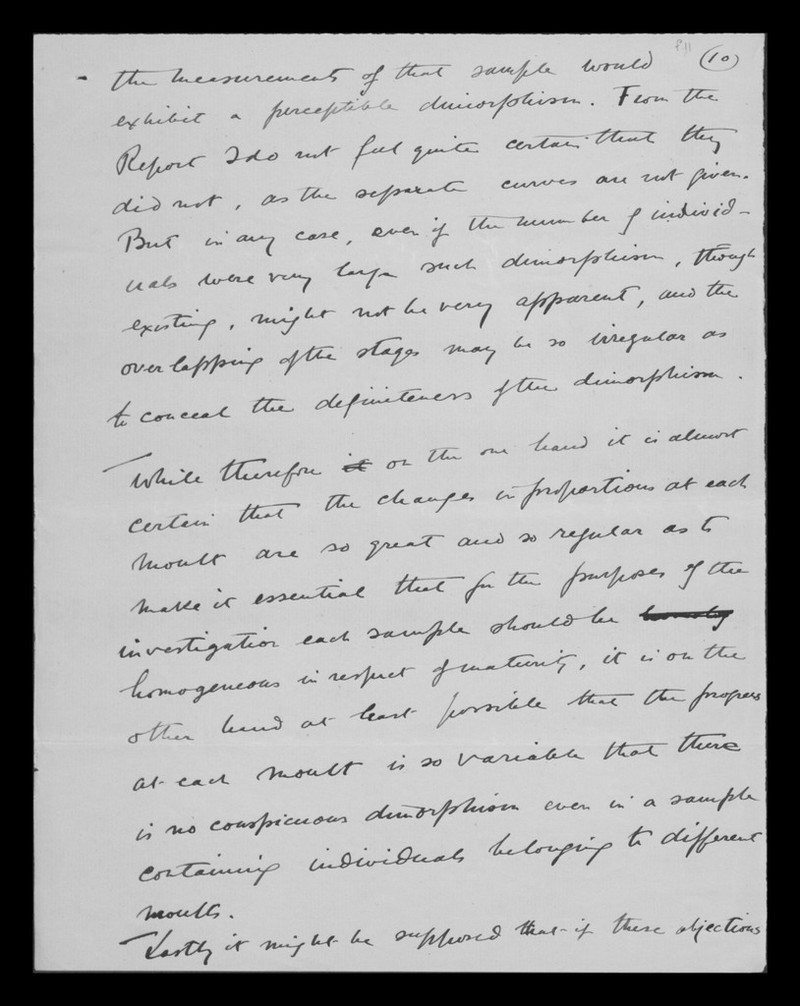 p.11 (10)
the measurements of that sample would
exhibit a perceptible dimorphism. From the
Report I do not feel quite certain that they
did not, as the separate curves are not given.
But in any case, even if the number of individ-
uals were very large such dimorphism, though
existing, might not be very apparent, and the
overlapping of the stages may be so irregular as
to conceal the definiteness of the dimorphism.
While therefore it on the one hand it is almost
certain that the changes in proportions at each
moult are so great and so regular as to
make it essential that for the purposes of the
investigation each sample should be
homogeneous in respect of maturity, it is on the
other hand at least possible that the progress
at each moult is so variable that there
is no conspicuous dimorphism even in a sample
containing individuals belonging to different
moults.
Lastly it might be supposed that if these objections